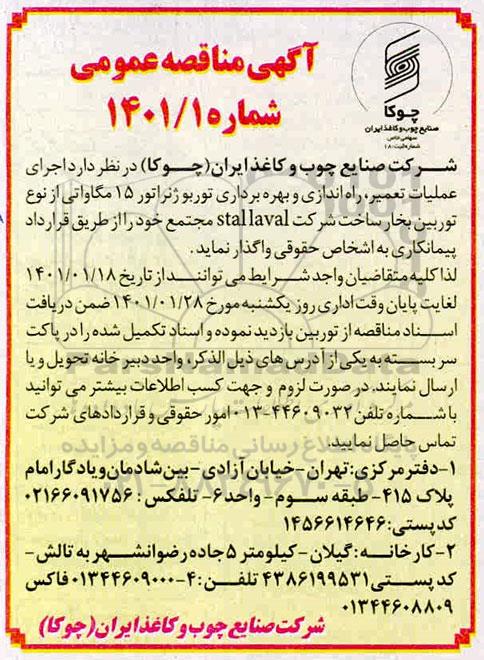 چوکا
صنایع چوب و کاغذ ایران
سهامی خاص
شماره ثبت: ۱۸
آگهی مناقصه عمومی
شماره ۱۴۰۱/۱
شرکت صنایع چوب و کاغذ ایران (چوکا) در نظر دارد اجرای
عملیات تعمیر، راه اندازی و بهره برداری توربو ژنراتور ۱۵ مگاواتی از نوع
توربین بخار ساخت شرکت stal laval مجتمع خود را از طریق قرارداد
پیمانکاری به اشخاص حقوقی واگذار نماید.
لذا کلیه متقاضیان واجد شرایط می توانند از تاریخ ۱۴۰۱/۰۱/۱۸
لغایت پایان وقت اداری روز یکشنبه مورخ ۱۴۰۱/۰۱/۲۸ ضمن دریافت
اسناد مناقصه از توربین بازدید نموده و اسناد تکمیل شده را در پاکت
سر بسته به یکی از آدرس های ذیل الذکر، واحد دبیر خانه تحویل و یا
ارسال نمایند. در صورت لزوم و جهت کسب اطلاعات بیشتر می توانید
با شماره تلفن ۴۴۶۰۹۰۳۲-۰۱۳ امور حقوقی و قراردادهای شرکت
تماس حاصل نمایید.
۱-دفتر مرکزی: تهران-خیابان آزادی-بین شادمان و یادگار امام
پلاک ۴۱۵- طبقه سوم- واحد ۶- تلفکس: ۰۲۱۶۶۰۹۱۷۵۶
کد پستی: ۱۴۵۶۶۱۴۶۴۶
۲-کارخانه: گیلان-کیلومتر ۵ جاده رضوانشهر به تالش-
کد پستی ۴۳۸۶۱۹۹۵۳۱ تلفن: ۴-۰۱۳۴۴۶۰۹۰۰۰ فاکس
۰۱۳۴۴۶۰۸۸۰۹
شرکت صنایع چوب و کاغذ ایران (چوکا)
ParsNamadData
پایگاه اطلاع رسانی مناقصه و مزایده